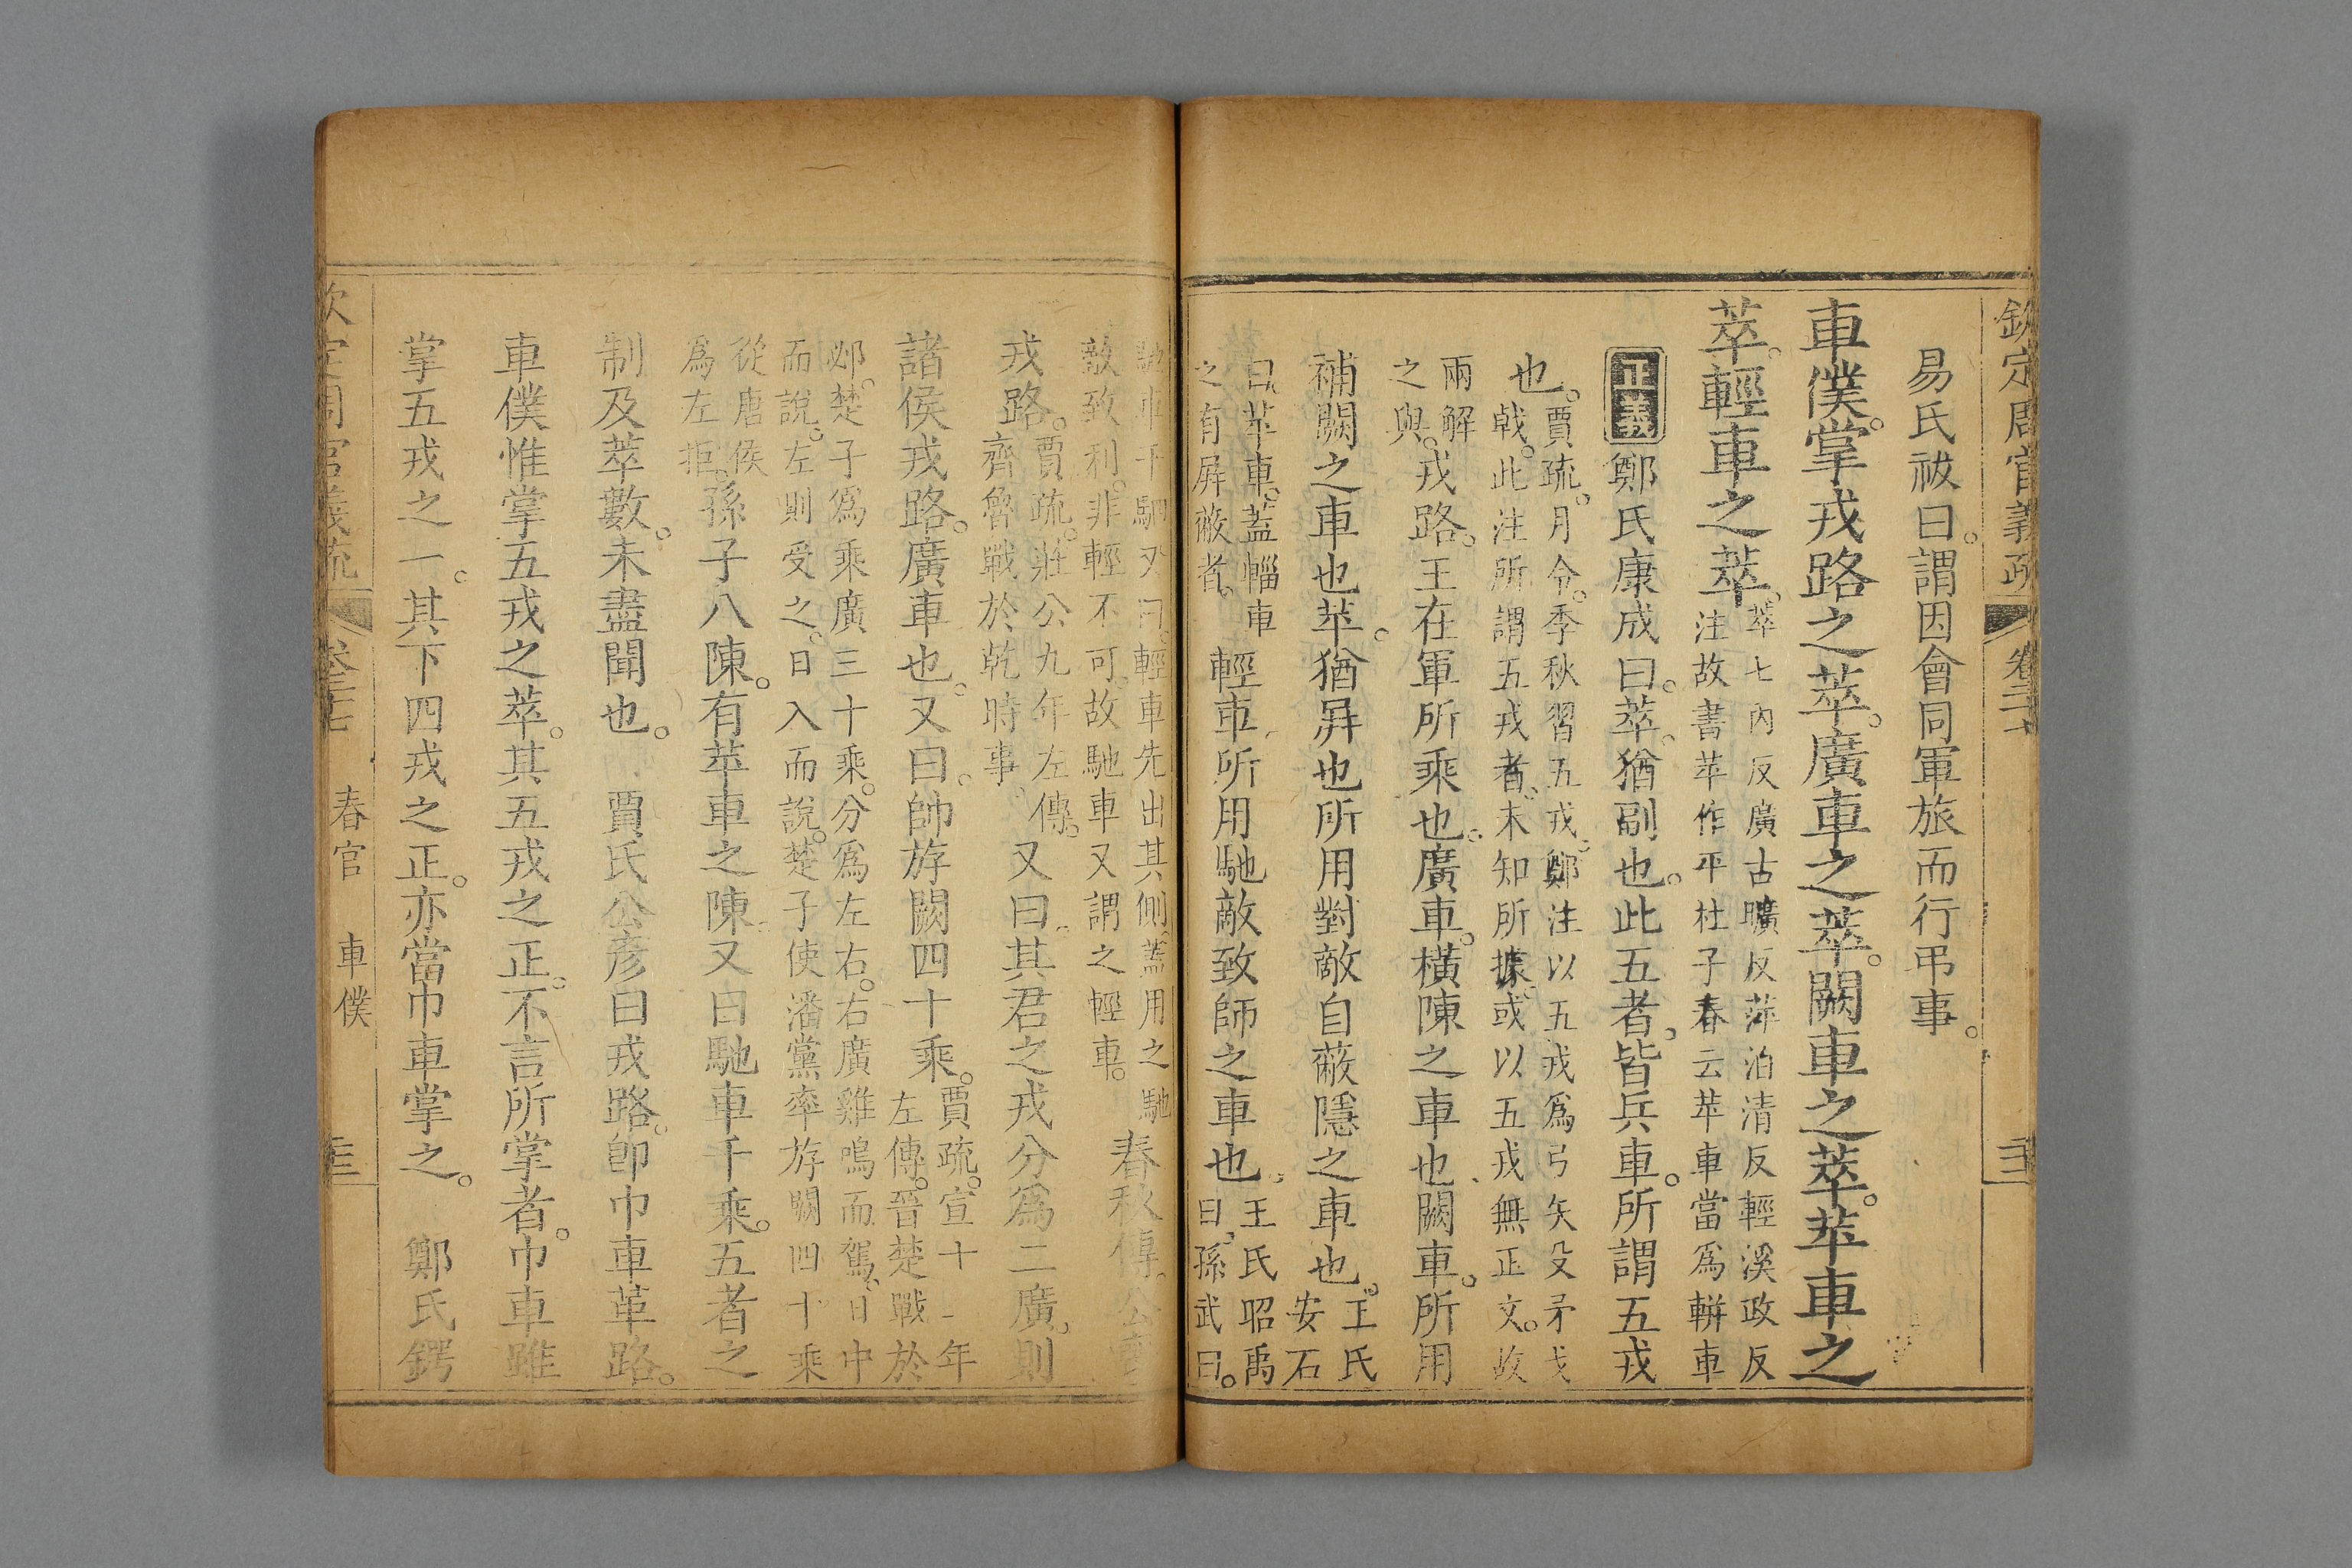 欽定周官義疏 卷二十七
易氏祓曰。謂因會同軍旅而行弔事。
車僕。掌戎路之萃。廣車之萃。闕車之萃。苹車之
萃。輕車之萃。
萃七內反廣古曠反苹泊清反輕溪政反
注故書苹作平杜子春云苹車當爲輧車
正義
鄭氏康成曰。萃。猶副也。此五者。皆兵車。所謂五戎
也。
賈疏。月令。季秋習五戎。鄭注以五戎爲弓矢殳矛戈
戟。此注所謂五戎者。未知所據。或以五戎無正文。故
兩解
之與。
戎路。王在軍所乘也。廣車。橫陳之車也。闕車。所用
補闕之車也。苹。猶屛也所用對敵自蔽隱之車也。
王氏
安石
曰。苹車。蓋輜車
之有屛蔽者。
輕車。所用馳敵致師之車也。
王氏昭禹
曰。孫武曰。
馳車千駟又曰。輕車先出其側。蓋用之馳
敵致利。非輕不可。故馳車又謂之輕車。
春秋傳。公喪
戎路。
賈疏。莊公九年左傳。
齊魯戰於乾時事。
又曰。其君之戎分爲二廣。則
諸侯戎路。廣車也。又曰。帥斿闕四十乘。
賈疏。宣十二年
左傳。晉楚戰於
邲。楚子爲乘廣三十乘。分爲左右。右廣雞鳴而駕。日中
而說。左則受之。日入而說。楚子使潘黨率斿闕四十乘
從唐侯
爲左拒。
孫子八陳。有苹車之陳。又曰馳車千乘。五者之
制及萃數。未盡聞也。 賈氏公彥曰戎路。卽巾車革路。
車僕惟掌五戎之萃。其五戎之正。不言所掌者。巾車雖
掌五戎之一。其下四戎之正。亦當巾車掌之。 鄭氏鍔
春官 車僕